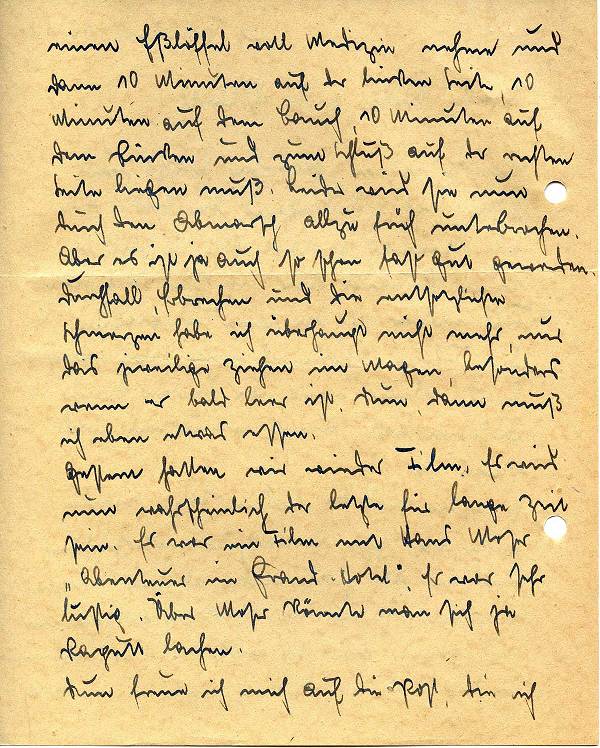 einen Eßlöffel voll Medizin nehme und
dann 10 Minuten auf der linken Seite, 10
Minuten auf dem Bauch, 10 Minuten auf
dem Rücken und zum Schluß auf der rechten
Seite liegen muß. Leider wird sie nun
durch den Abmarsch allzu früh unterbrochen.
Aber es ist ja auch so schon fast gut geworden.
Durchfall, Erbrechen und die entsetzlichen
Schmerzen habe ich überhaupt nicht mehr, nur
das jeweilige Ziehen im Magen, besonders
wenn er bald leer ist. Nun, dann muß
ich eben etwas essen.
Gestern hatten wir wieder Film. Es wird
nun wahrscheinlich der letzte für lange Zeit
sein. Es war ein Film mit Hans Moser
„Abenteuer im Grand-Hotel“. Er war sehr
lustig. Über Moser könnte man sich ja
kaputt lachen.
Nun freue ich mich auf die Post, die ich